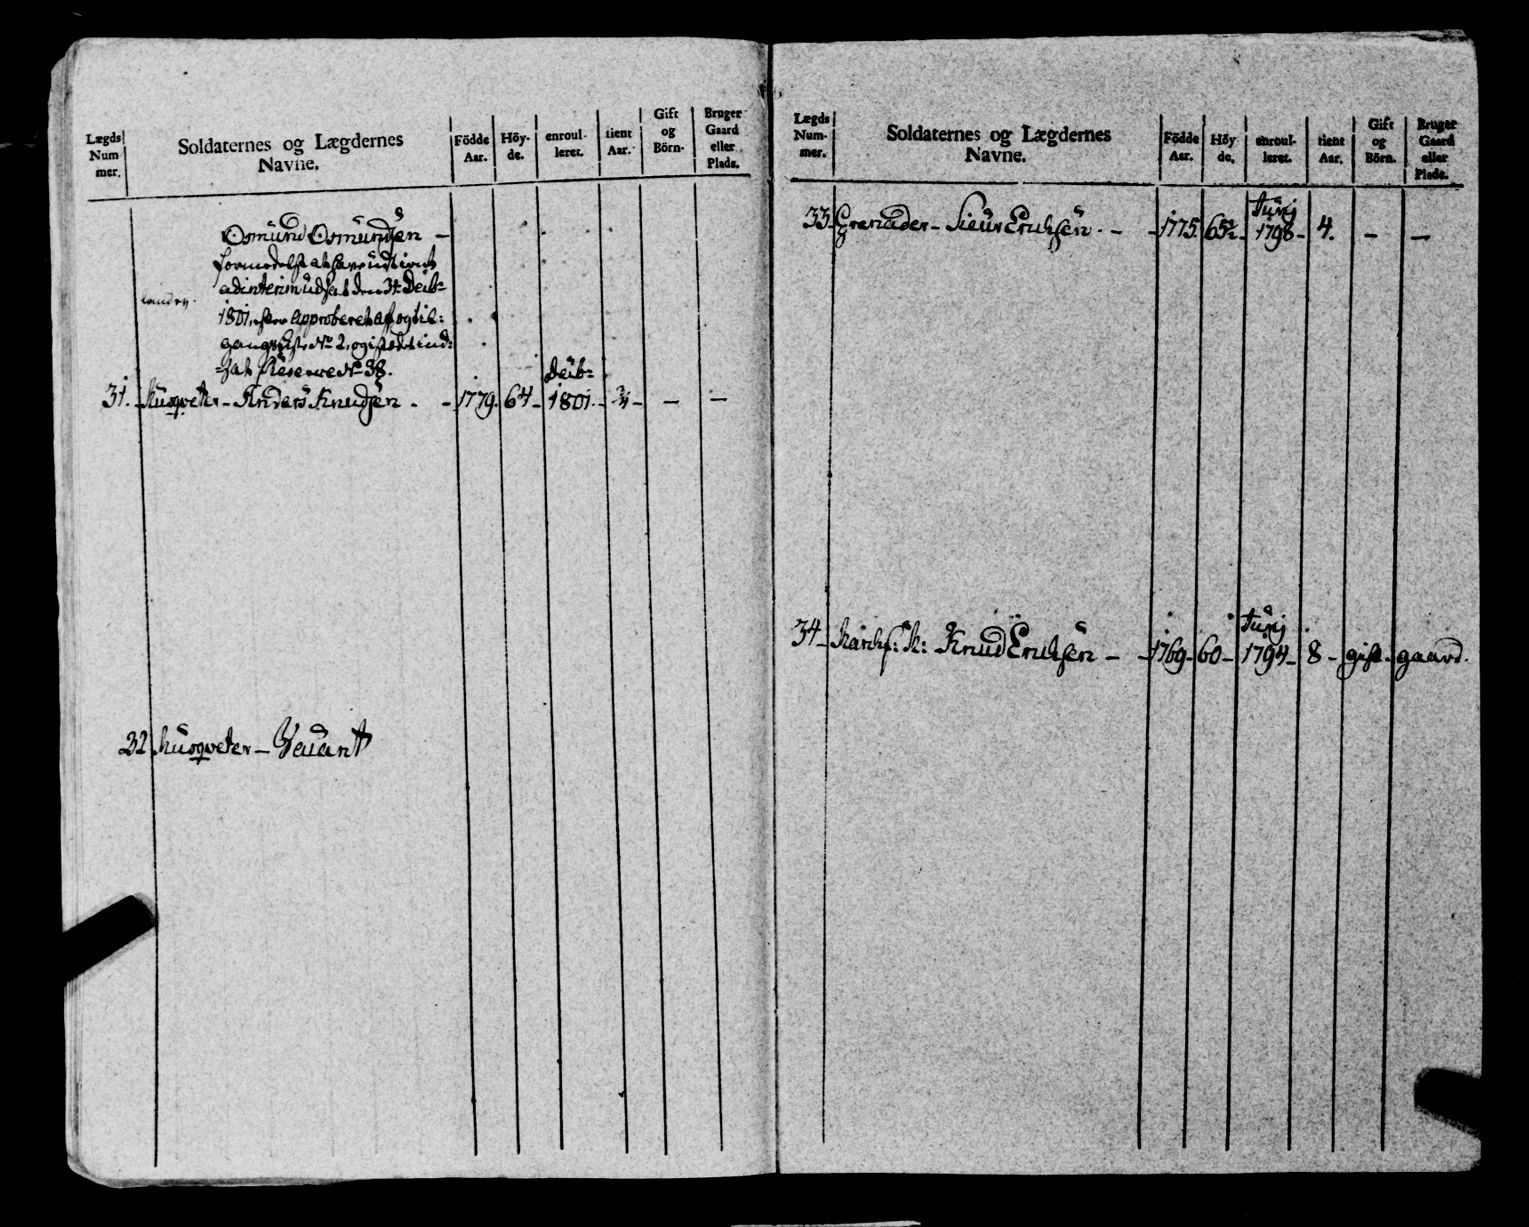 Lægds Num- mer. Soldaternes og Lægdernes Navne. Födde Aar. Höy- de. enroul- leret. tient Aar. Gift og Börn. Bruger Gaard eller Plads.
Osmund Osmundsen –
formedelst at have udtient
adinterim udsat den 31 Decb:
1801, efter Approberet afog til:
gangsliste No 2, og i stædet ind:
sat Reserve No 38.
31. Musqveter – Anders Knudsen. – 1779. 64 – Decb: 1801. – ¾ – – –
32 Musqveter – Vacant
Lægds Num- mer. Soldaternes og Lægdernes Navne. Födde Aar. Höy- de. enroul- leret. tient Aar. Gift og Börn. Bruger Gaard eller Plads.
33. Grenader – Siur Erichsen. – 1775. 65½ – Junij 1798 – 4. – –
34 – Knud Erichsen – 1769 – 60 – Junij 1794 – 8 – gift – gaard.